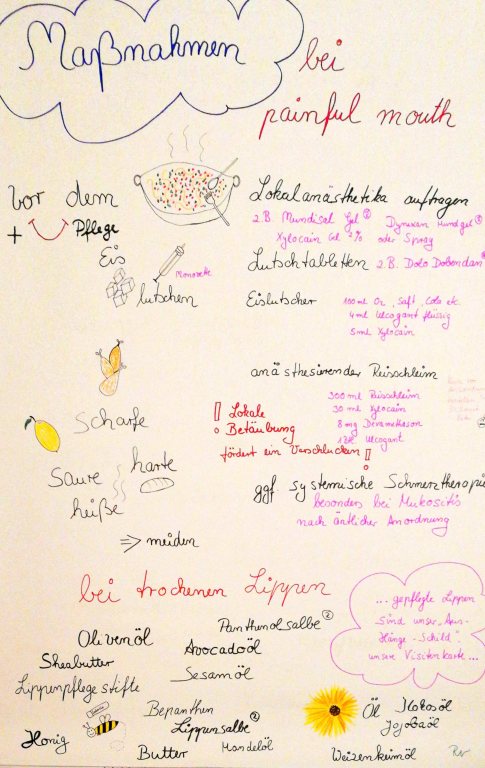 Maßnahmen
bei
painful mouth
vor dem
+ Pflege
Eis
lutschen
Monovette
Lokalanästhetika auftragen
z.B Mundisal Gel ® Dynexan Mundgel ®
Xylocain Gel 2% oder Spray
Lutschtabletten z.B. Dolo Dobendan ®
Eislutscher
100 ml O, Saft, Cola etc
4 ml Ulcogant flüssig
5 ml Xylocain
anästhesierender Reisschleim
300 ml Reisschleim
30 ml Xylocain
8 mg Dexametheson
Ulcogant
! Lokale
Betäubung
fördert ein Verschlucken !
Scharfe
Saure harte
heiße
⇒ meiden
ggf systemische Schmerztherapie
besonders bei Mukositis
nach ärtlicher Anordnung
bei trockenen Lippen
Olivenöl
Panthenolsalbe ②
Sheabutter
Avocadoöl
Lippenpflege stifte
Sesamöl
Bepanthen
Lippensalbe ②
Honig
Butter
Mandelöl
Öl
Kokosöl
Jojobaöl
Weizenkeimöl
... gepflegte Lippen
sind unser „Aus-
Hänge-Schild",
unsere Visitenkarte...